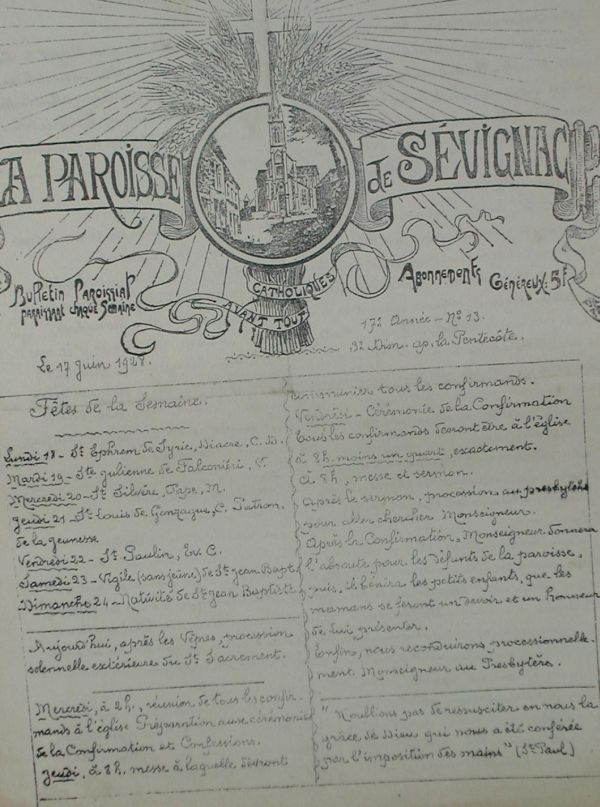 LA PAROISSE de SÉVIGNAC
Bulletin Paroissial
paraissant chaque Semaine
CATHOLIQUES
AVANT TOUT
Abonnements Généreux: 5F
17e Année - No 13.
Le 17 Juin 1928.
3e Dim. ap. la Pentecôte.
Fêtes de la Semaine.
Lundi 18 - St Ephrem de Syrie, Diacre, C. D.
Mardi 19 - Ste Julienne de Falconiéri, V.
Mercredi 20 - St Silvère, Pape, M.
Jeudi 21 - St Louis de Gonzague, C. Patron
de la jeunesse
Vendredi 22 - St Paulin, Ev. C.
Samedi 23 - Vigile (sans jeûne) de St Jean Bapt.
Dimanche 24 - Nativité de St Jean Baptiste
Aujourd'hui, après les Vêpres, procession
solennelle extérieure du St Sacrement.
Mercredi, à 2h., réunion de tous les confir-
mands à l'église Préparation aux cérémonies
de la Confirmation et Confessions.
Jeudi, à 8h. messe à laquelle devront
communier tous les confirmands.
Vendredi - Cérémonie de la Confirmation
Tous les confirmands devront être à l'église
à 8h. moins un quart, exactement.
à 8h, messe et sermon.
Après le sermon, procession au presbytère
pour aller chercher Monseigneur.
Après la Confirmation, Monseigneur donnera
l'absoute pour les défunts de la paroisse,
puis, il bénira les petits enfants, que les
mamans se feront un devoir et un honneur
de lui présenter.
Enfin, nous reconduirons processionnelle-
ment Monseigneur au Presbytère.
"N'oublions pas de ressusciter en nous la
grâce de Dieu qui nous a été conférée
par l'imposition des mains" (St Paul)